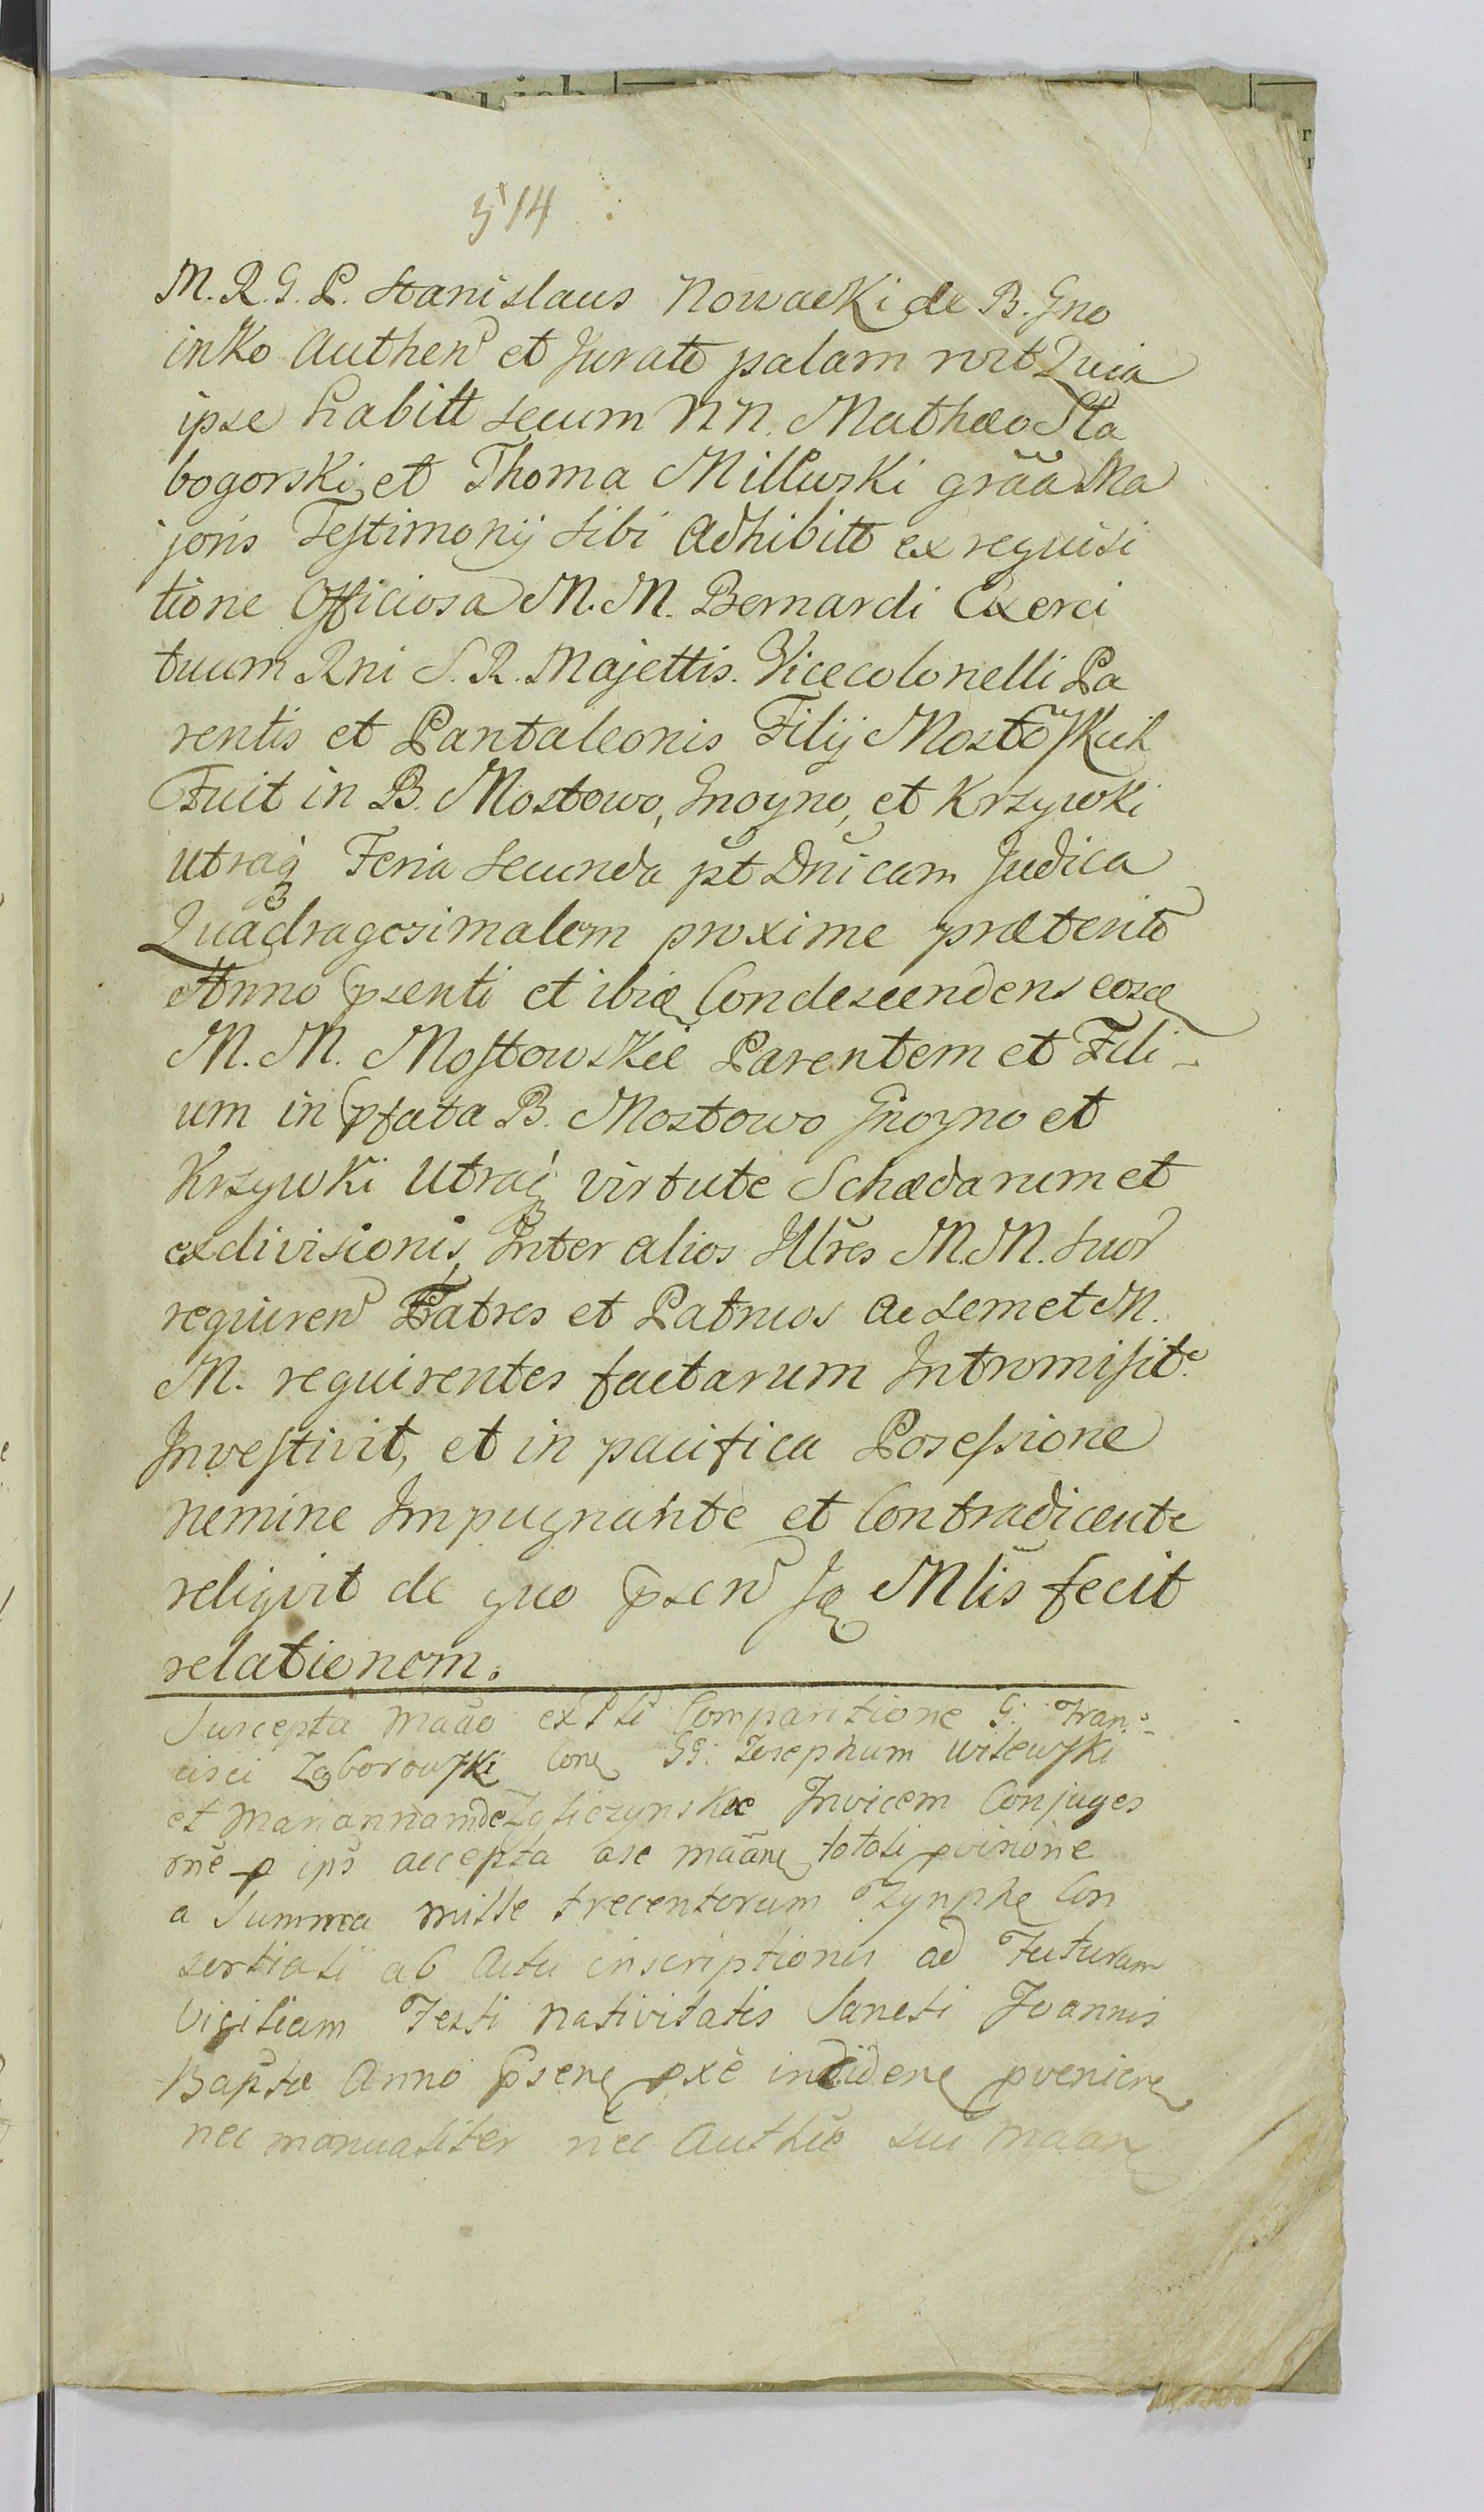 514
M. R. G. P. Stanislaus Nowacki de B. Gno
inko Authen et Jurate palam rort Quia
ipse habitt secum NN. Mathæo Sła
bogorski et Thoma Millewski grãa Ma
joris Testimonij sibi Adhibitt ex requisi
tione Officiosa M. M. Bernardi Exerci
tuum Rni S. R. Majettis. Vicecolonelli Pa
rentis et Pantaleonis Filij Mostõskich
Fuit in B. Mostowo, Gnoyno, et Krzywki
utraq Feria Secunda pt Dnicam Judica
Quadragesimalem proxime præterit
Anno psenti et ibiq Condescendens eosq
M. M. Mostowskie Parentem et Fili-
um in pfata B. Mostowo Gnoyno et
Krzywki Utraq virtute Schædarum et
exdivisionis, Inter alios Illres M. M. Suor
requiren Fratres et Patruos ac semet M.
M. requirentes factarum Intromisit
Investivit, et in pacifica Posessione
nemine Impugnante et Contradicente
reliqvit de quo psen Jq Mlis fecit
relationem.
Suscepta Mãao ex Comparitione G. Fran-
cisci Zgborowski Conq GG. Josephum Witewski
et Mariannam de Zgliczynskie Invicem Conjuges
õne p ips accepta ase mãanq totali pvisione
a Summa mille trecentorum Tzynphq Con
sertiati ab Actu inscriptionis ad Futuram
Vigiliam Festi Nativitatis Sancti Joannis
Bapstæ Anno psenq pxe incidenq pvenienq
nec manualiter nec Authce sui maanq